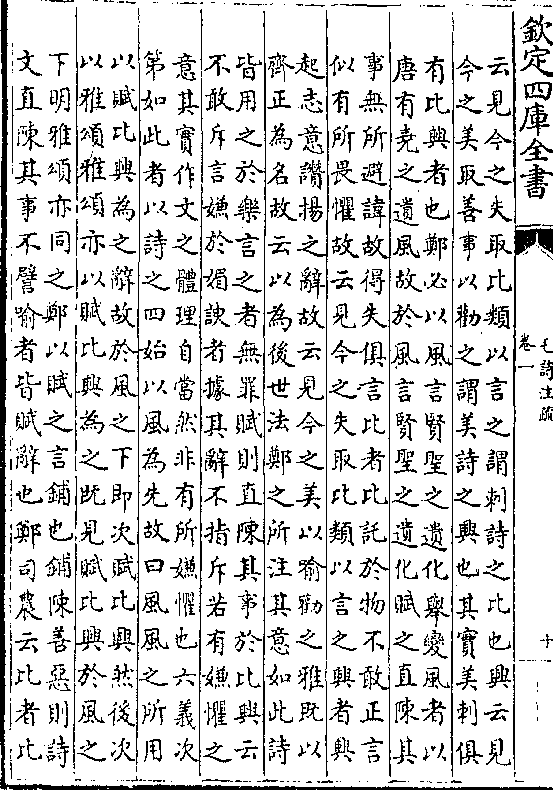 欽定四庫全書
毛詩注疏
卷一
十
云見今之失取比類以言之謂刺詩之比也興云見
今之美取善事以勸之謂美詩之興也其實美刺俱
有比興者也鄭必以風言賢聖之遺化舉變風者以
唐有堯之遺風故於風言賢聖之遺化賦之直陳其
事無所避諱故得失俱言比者比託於物不敢正言
似有所畏懼故云見今之失取比類以言之興者興
起志意讚揚之辭故云見今之美以喻勸之雅既以
齊正為名故云以為後世法鄭之所注其意如此詩
皆用之於樂言之者無罪賦則直陳其事於比興云
不敢斥言嫌於媚諛者據其辭不指斥若有嫌懼之
意其實作文之體理自當然非有所嫌懼也六義次
第如此者以詩之四始以風為先故曰風風之所用
以賦比興為之辭故於風之下即次賦比興然後次
以雅頌雅頌亦以賦比興為之既見賦比興於風之
下明雅頌亦同之鄭以賦之言鋪也鋪陳善惡則詩
文直陳其事不譬喻者皆賦辭也鄭司農云比者比